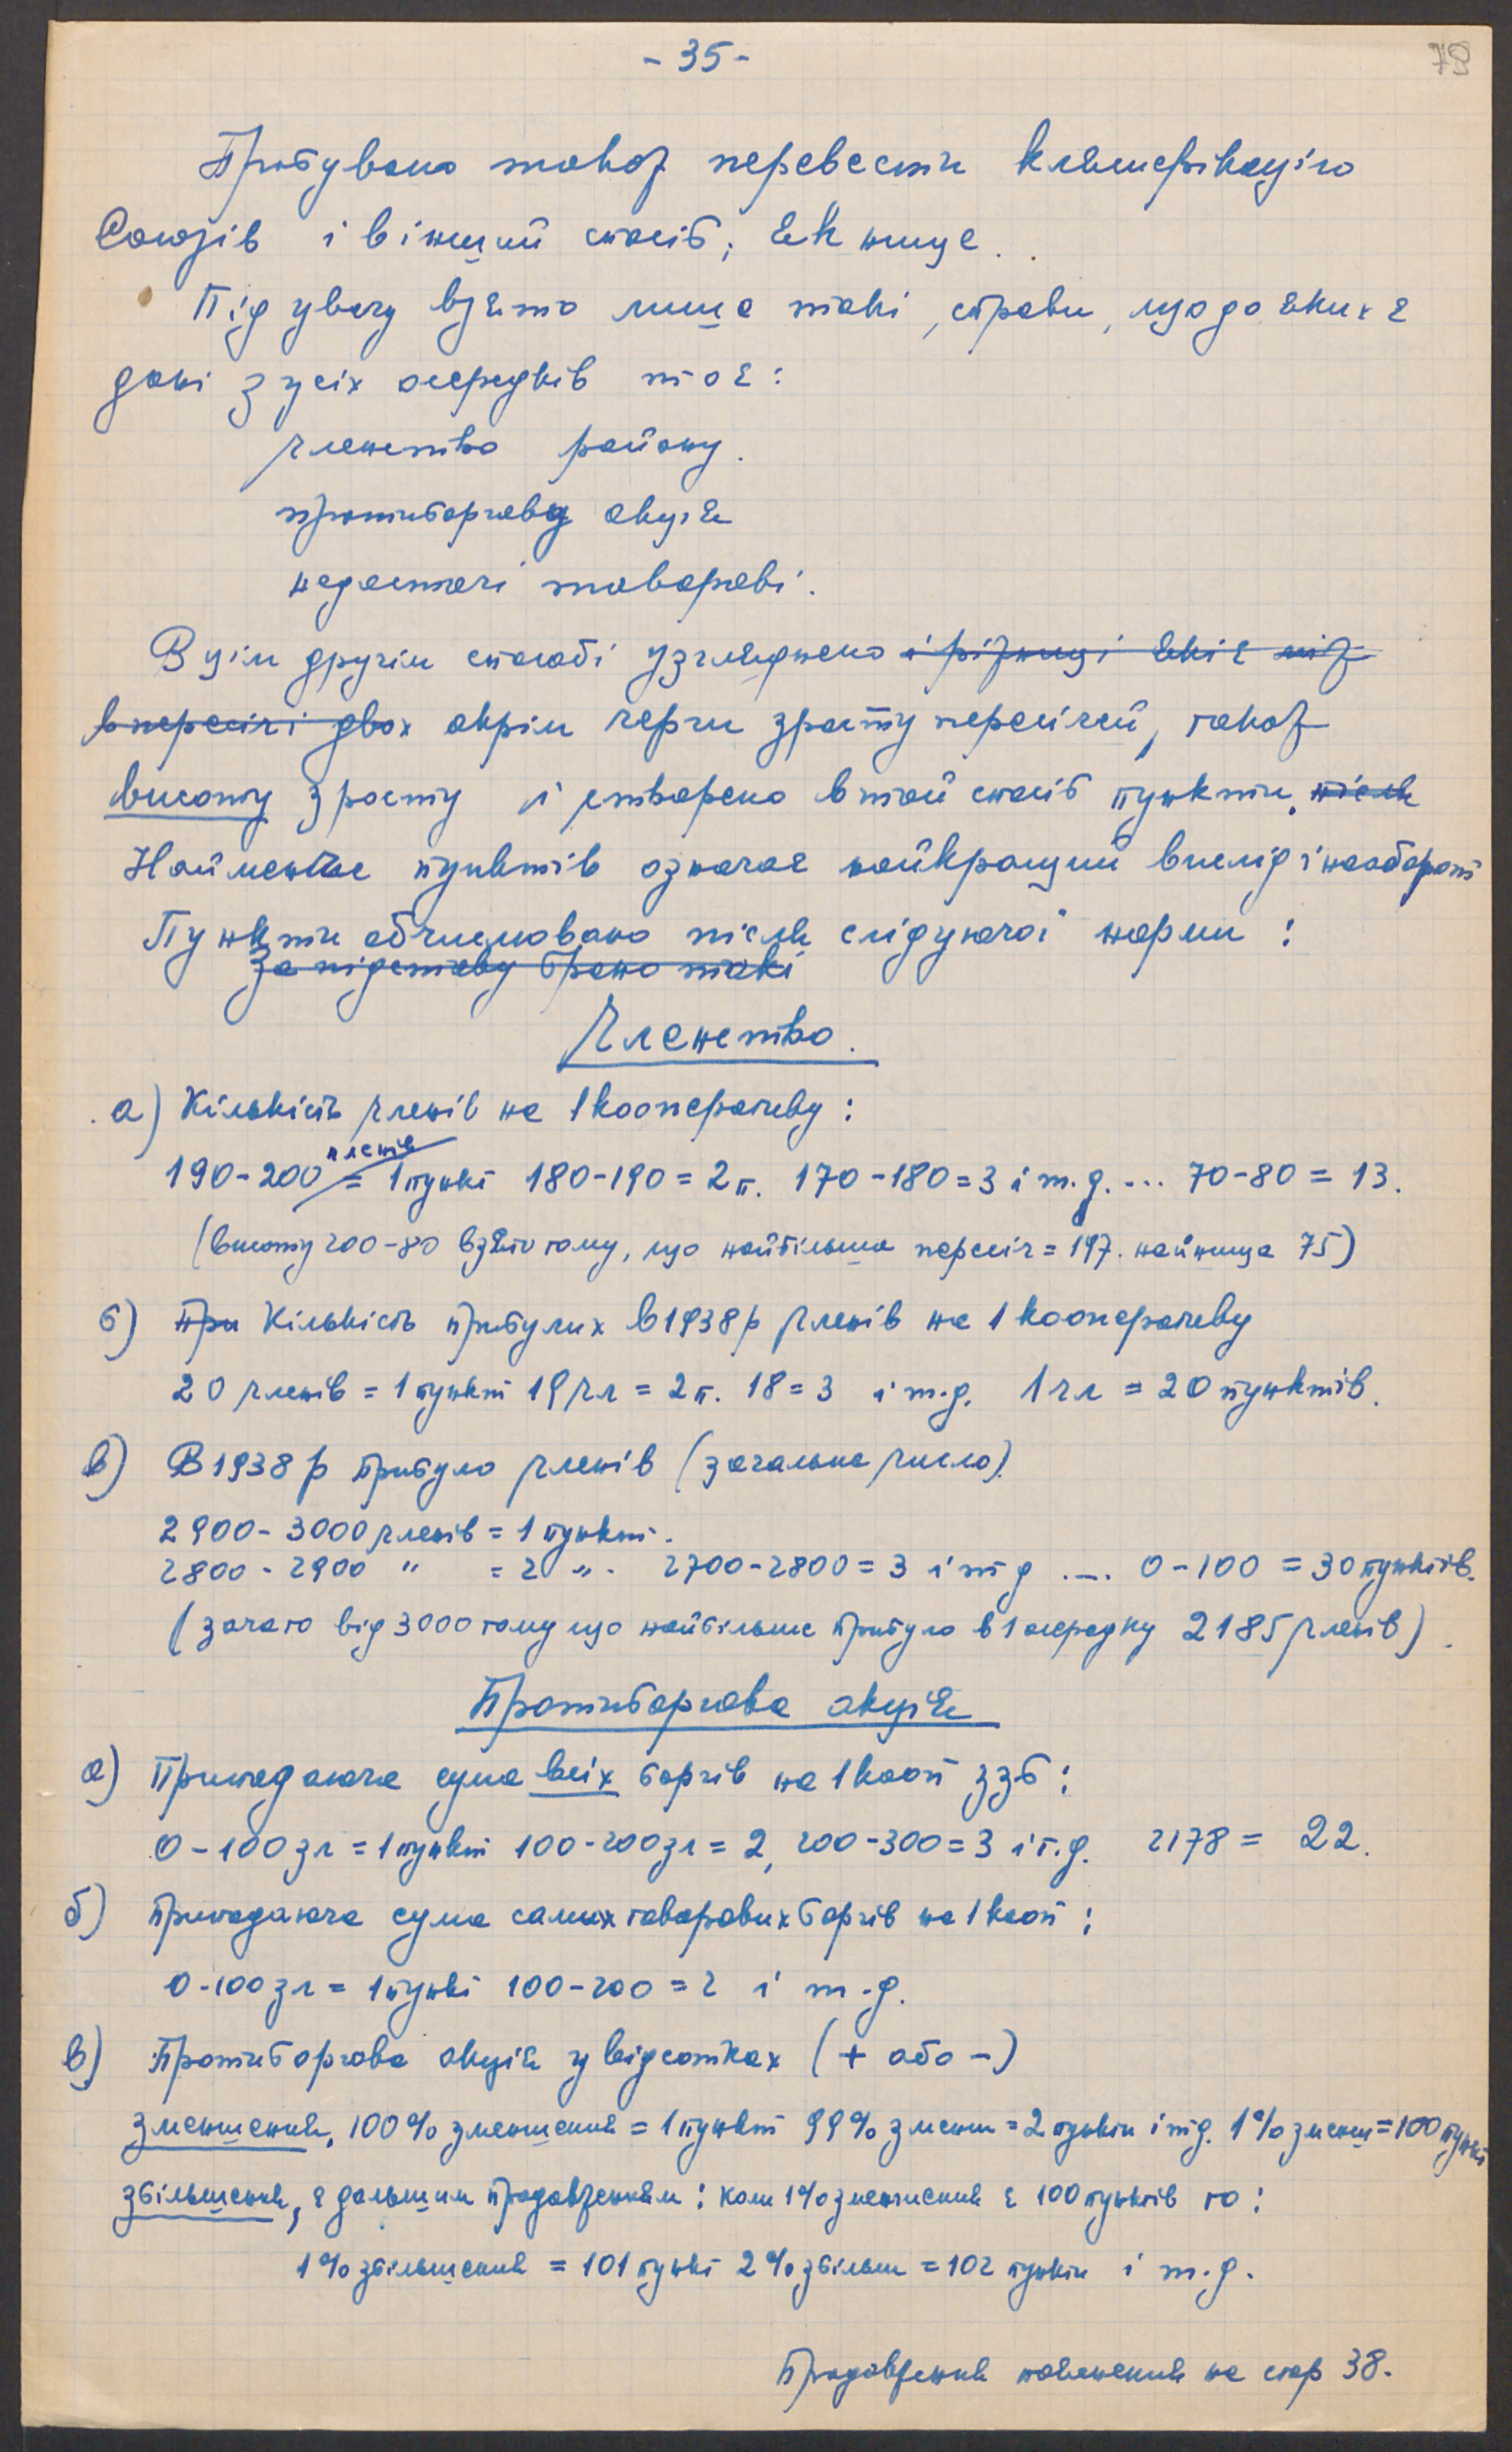 - 35 -
79
Пробувано також перевести клясифікацію
Союзів і в інший спосіб, як нище.
Під увагу взято лише такі справи, щодо яких є
дані з усіх осередків то є:
членство району.
протиборгова акція
недостачі товарові.
В цім другім способі узгляднено і ріжниці які є між
в пересічі двох окрім черги зросту пересічей, також
висоту зросту і утворено в той спосіб пункти. після
Найменше пунктів означає найкращий вислід і наоборот
Пункти обчислювано після слідуючої норми:
За підставу брано такі
Членство.
а) Кількість членів на 1 кооперативу:
членів
190-200 = 1 пункт 180-190 = 2 п. 170-180 = 3 і т.д. ... 70-80 = 13.
(висоту 200-80 взято тому, що найбільша пересіч = 197. найнища 75)
б) При Кількість прибулих в 1938 р членів на 1 кооперативу
20 членів = 1 пункт 19 чл = 2 п. 18 = 3 і т.д. 1 чл = 20 пунктів.
в) В 1938 р прибуло членів (загальне число).
2900 - 3000 членів = 1 пункт.
2800 - 2900 " = 2 ". 2700-2800 = 3 і т д .... 0-100 = 30 пунктів.
(зачато від 3000 тому що найбільше прибуло в 1 осередку 2185 членів).
Протиборгова акція
а) Припадаюча сума всіх боргів на 1 кооп ззб:
0-100 зл = 1 пункт 100-200 зл = 2, 200-300 = 3 і т.д. 2178 = 22.
б) припадаюча сума самих товарових боргів на 1 кооп:
0-100 зл = 1 пункт 100-200 = 2 і т.д.
в) Протиборгова акція у відсотках (+ або -)
зменшення, 100% зменшення = 1 пункт 99% зменш = 2 пункти і т д. 1% зменш = 100 пункт
збільшення, є дальшим продовженням: коли 1% зменшення є 100 пунктів то:
1% збільшення = 101 пункт 2% збільш = 102 пункти і т.д.
Продовження пояснення на стор 38.